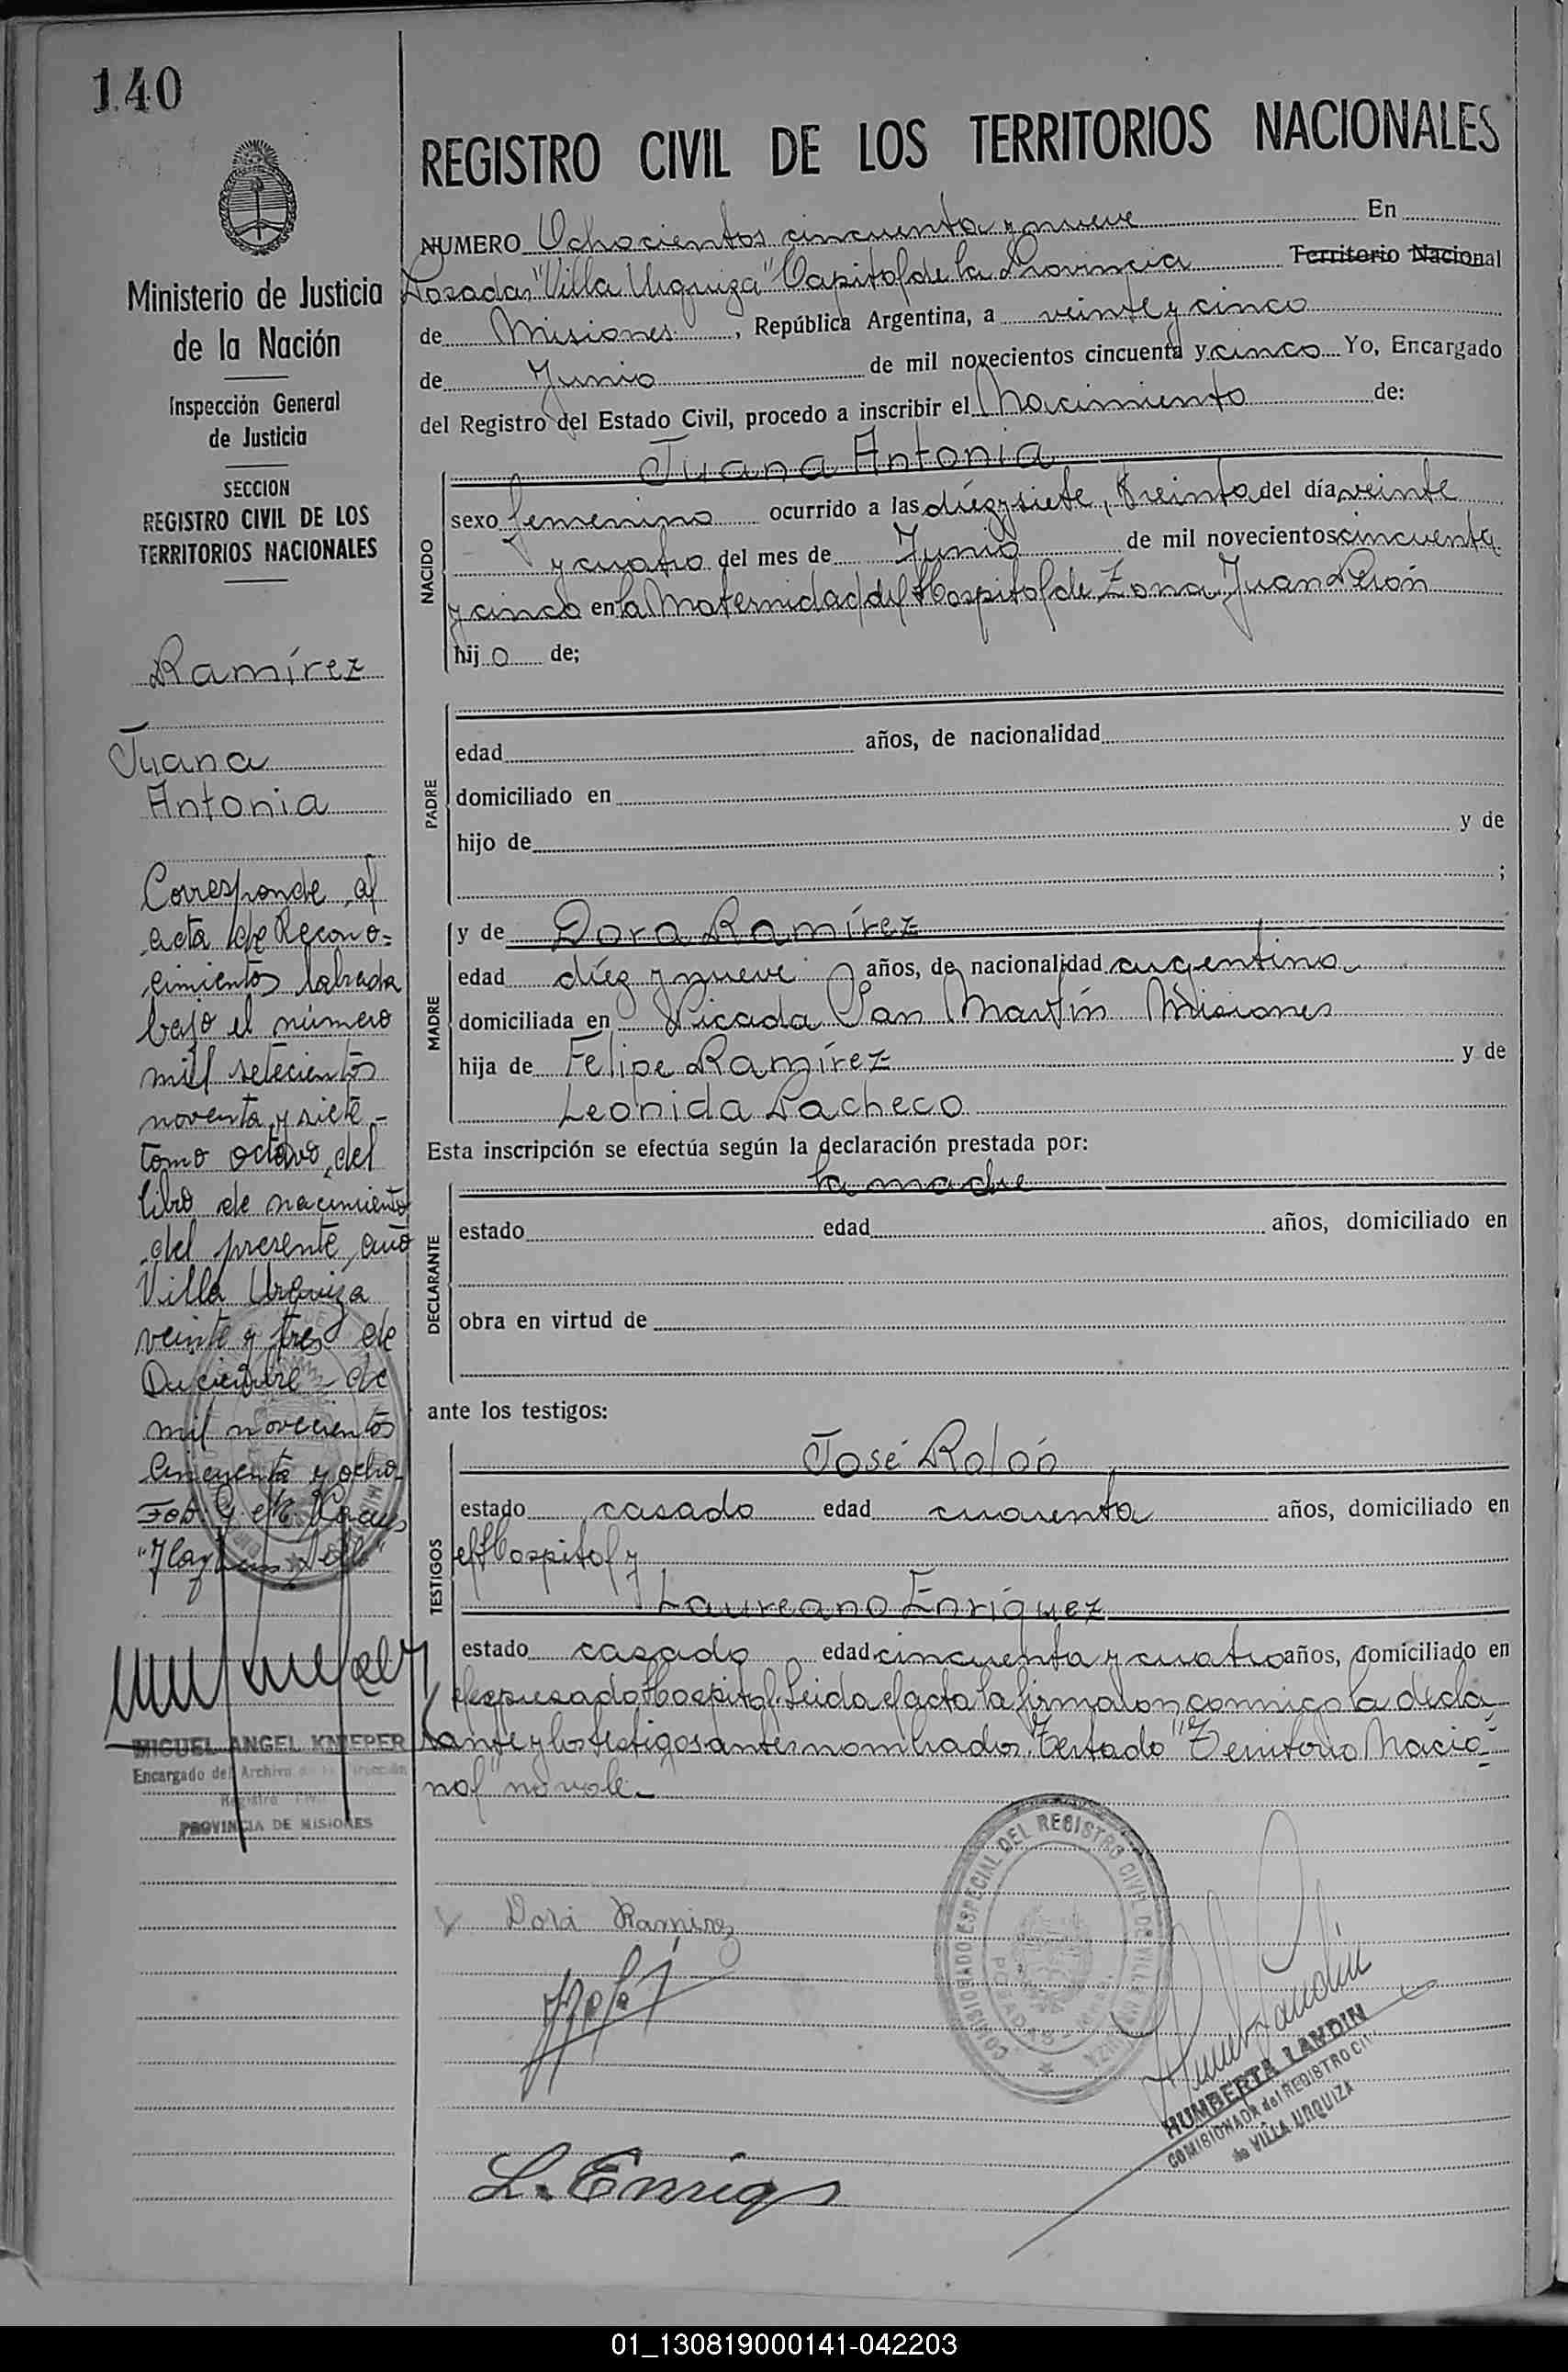 140
Ministerio de Justicia
de la Nación
Inspección General
de Justicia
SECCION
REGISTRO CIVIL DE LOS
TERRITORIOS NACIONALES
Ramírez
Juana
Antonia
Corresponde al
acta de Recono=
cimientos labrada
bajo el número
mil setecientos
noventa y siete -
tomo octavo, del
libro de nacimiento
del presente año
Villa Urquiza
veinte y tres de
Diciembre - de
mil novecientos
Cincuenta y ocho
MIGUEL ANGEL KNIEPER
Encargado del Archivo de la Dirección
Registro Civil
PROVINCIA DE MISIONES
REGISTRO CIVIL DE LOS TERRITORIOS NACIONALES
NUMERO Ochocientos cincuenta y nueve En
Posadas "Villa Urquiza" Capital de la Provincia Territorio Nacional
de Misiones, República Argentina, a veinte y cinco
de Junio de mil novecientos cincuenta y cinco Yo, Encargado
del Registro del Estado Civil, procedo a inscribir el Nacimiento de:
NACIDO
Juana Antonia
sexo femenino ocurrido a las diez y siete, treinta del día veinte
y cuatro del mes de Junio de mil novecientos cincuenta
y cinco en la Maternidad del Hospital de Zona Juan Perón
hij o de;
PADRE
edad años, de nacionalidad
domiciliado en
hijo de y de
;
MADRE
y de Dora Ramírez
edad diez y nueve años, de nacionalidad argentina
domiciliada en Picada San Martín Misiones
hija de Felipe Ramírez y de
Leonida Pacheco
Esta inscripción se efectúa según la declaración prestada por:
DECLARANTE
la madre
estado edad años, domiciliado en
obra en virtud de
ante los testigos:
TESTIGOS
José Rolón
estado casado edad cuarenta años, domiciliado en
el Hospital y
Laureano Enríquez
estado casado edad cincuenta y cuatro años, domiciliado en
el expresado Hospital. Leida el acta la firmaron conmigo la decla
rante y los testigos antes nombrados. Testado "Territorio Nacio=
nal" no vale.-
Dora Ramirez
COMISIONADO ESPECIAL DEL REGISTRO CIVIL DE VILLA URQUIZA
POSADAS
L. Enriq
HUMBERTA LANDIN
COMISIONADA del REGISTRO CIVIL
de VILLA URQUIZA
01_130819000141-042203